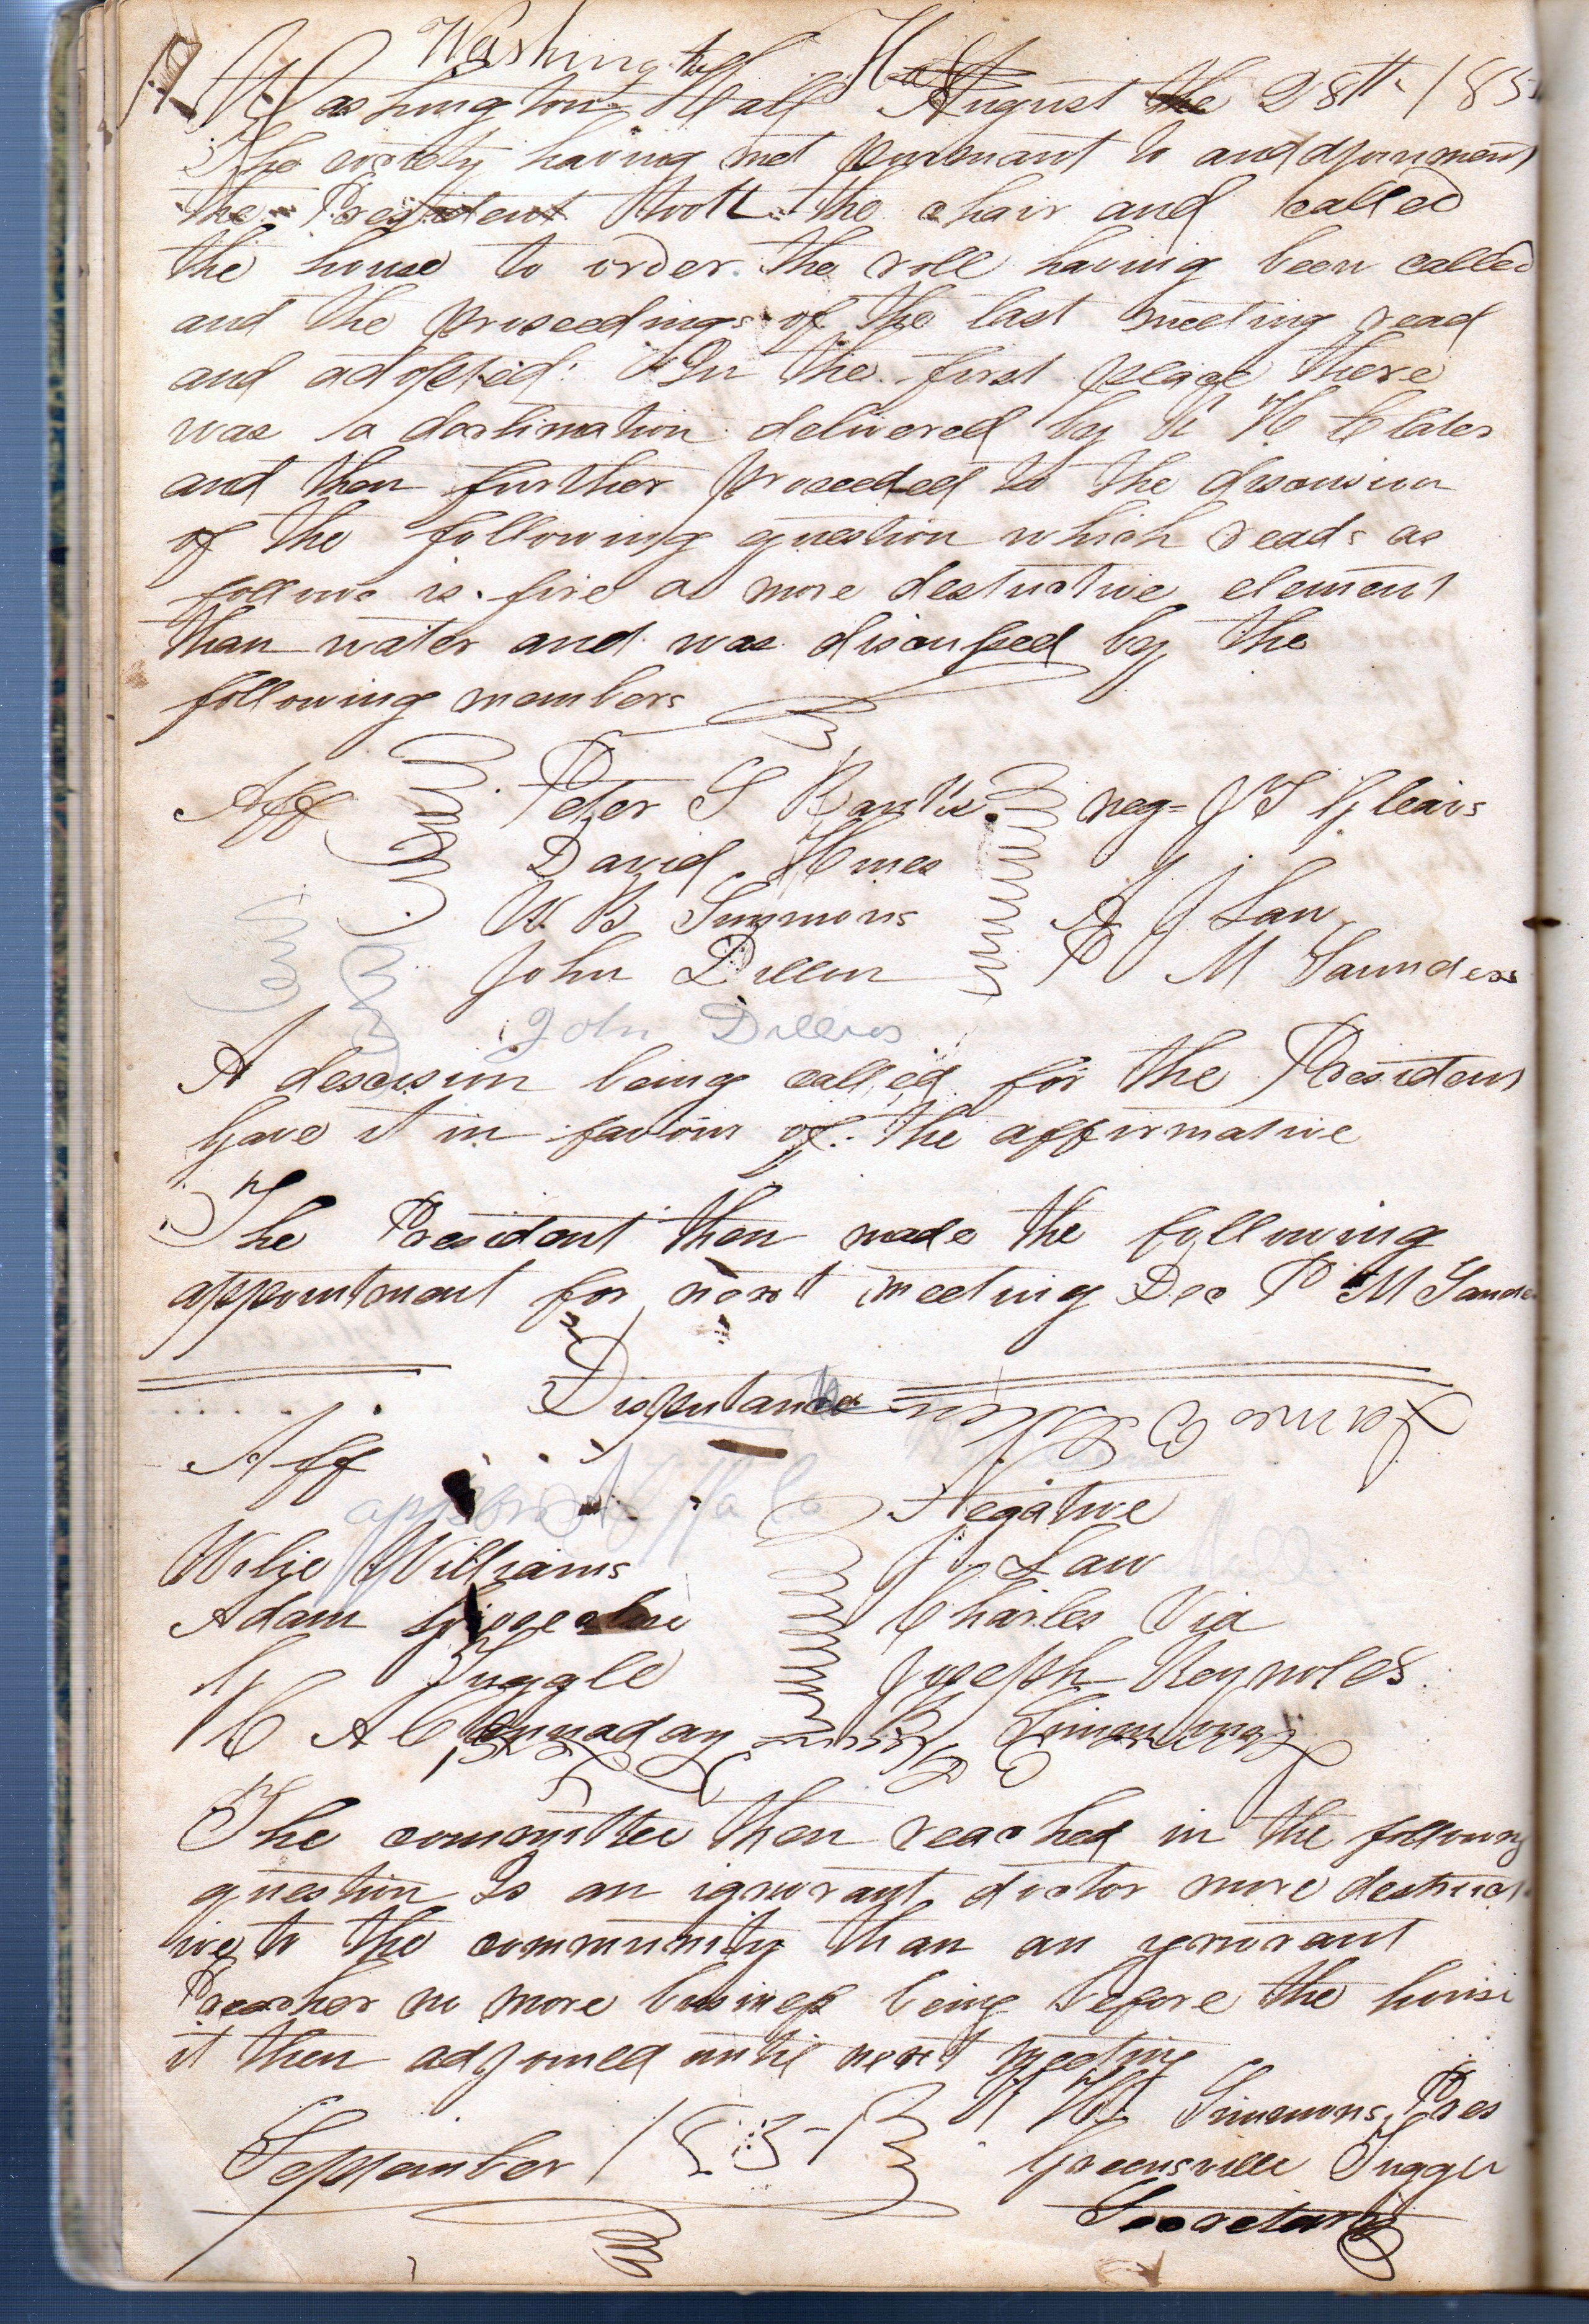 Washington H
Washington Hall August the 28th 185
The society having met pursuant to anddjournment
the President took the chair and called
the house to order the roll having been called
and the proseedings of the last meeting read
and adopted. In the first place there
was a daclimation delivered by H
and then further proceeded to the discussion
of the following question which reads as
follows is fire a more destuctive element
than water and was discussed by the
following members
Aff Peter S neg= J T Gleaves
David Hines
W. B Simmons A J Law
John Dillon P M Saunders
John Dillons
A descision being called for the President
gave it in favour of the affirmative
The President then made the following
appointment for next meeting Dec P M Saunde
Disputants
James B
Aff
Negative
Wilie Williams J Law
Adam Charles Via
G Tuggle Joseph Reynolds
C A Cannaday B Simmons
The committee then reached in the following
question Is an ignorant doctor more destruct
ive to the community than an ignorant
Preacher no more business being before the hous
it then adjoined until next meeting
W Simmons, Pres
September 1853 Greensville Tuggle
Secretary